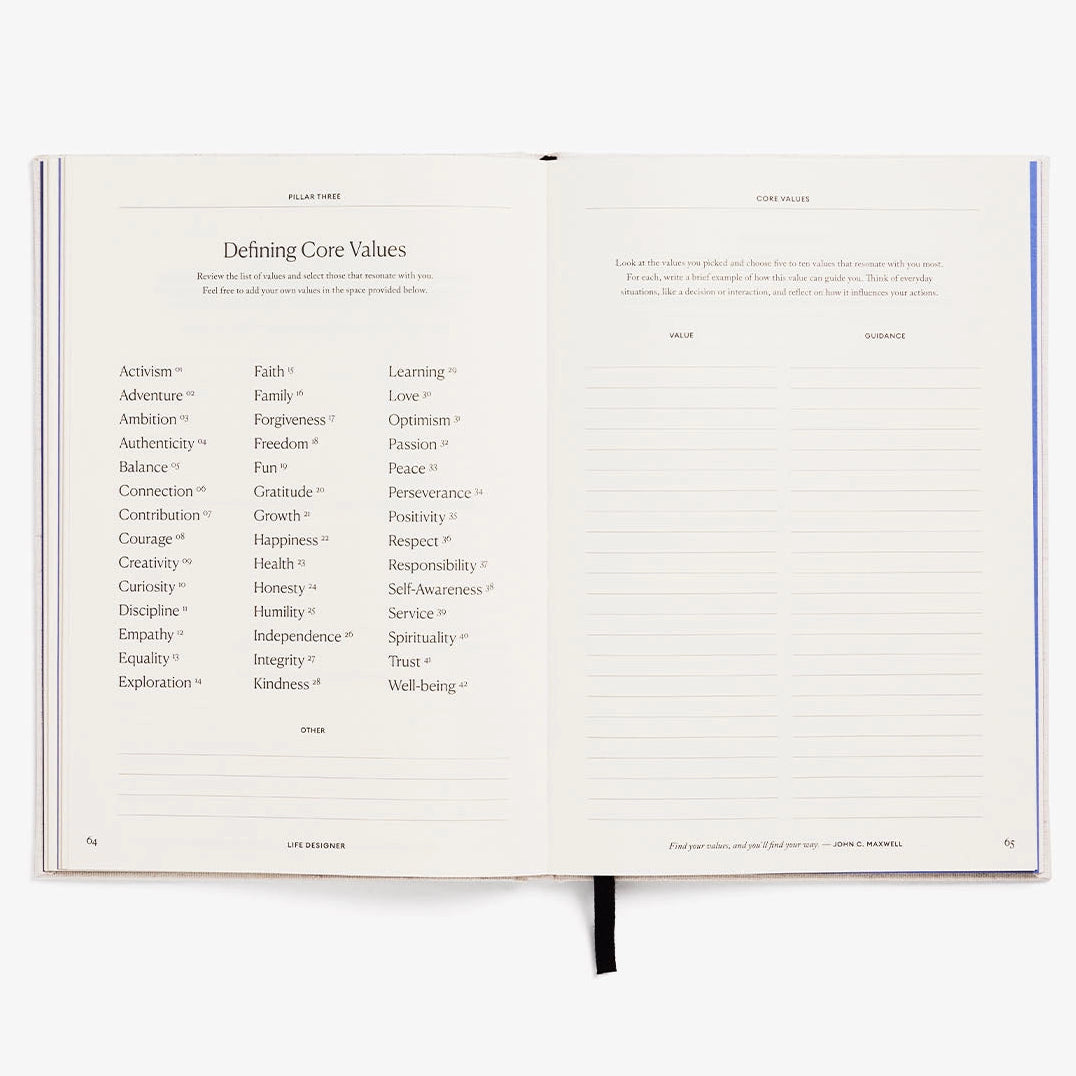 PILLAR THREE
Defining Core Values
Review the list of values and select those that resonate with you.
Feel free to add your own values in the space provided below.
Activism 01
Adventure 02
Ambition 03
Authenticity 04
Balance 05
Connection 06
Contribution 07
Courage 08
Creativity 09
Curiosity 10
Discipline 11
Empathy 12
Equality 13
Exploration 14
Faith 15
Family 16
Forgiveness 17
Freedom 18
Fun 19
Gratitude 20
Growth 21
Happiness 22
Health 23
Honesty 24
Humility 25
Independence 26
Integrity 27
Kindness 28
Learning 29
Love 30
Optimism 31
Passion 32
Peace 33
Perseverance 34
Positivity 35
Respect 36
Responsibility 37
Self-Awareness 38
Service 39
Spirituality 40
Trust 41
Well-being 42
OTHER
64
LIFE DESIGNER
CORE VALUES
Look at the values you picked and choose five to ten values that resonate with you most.
For each, write a brief example of how this value can guide you. Think of everyday
situations, like a decision or interaction, and reflect on how it influences your actions.
VALUE
GUIDANCE
Find your values, and you'll find your way. — JOHN C. MAXWELL
65